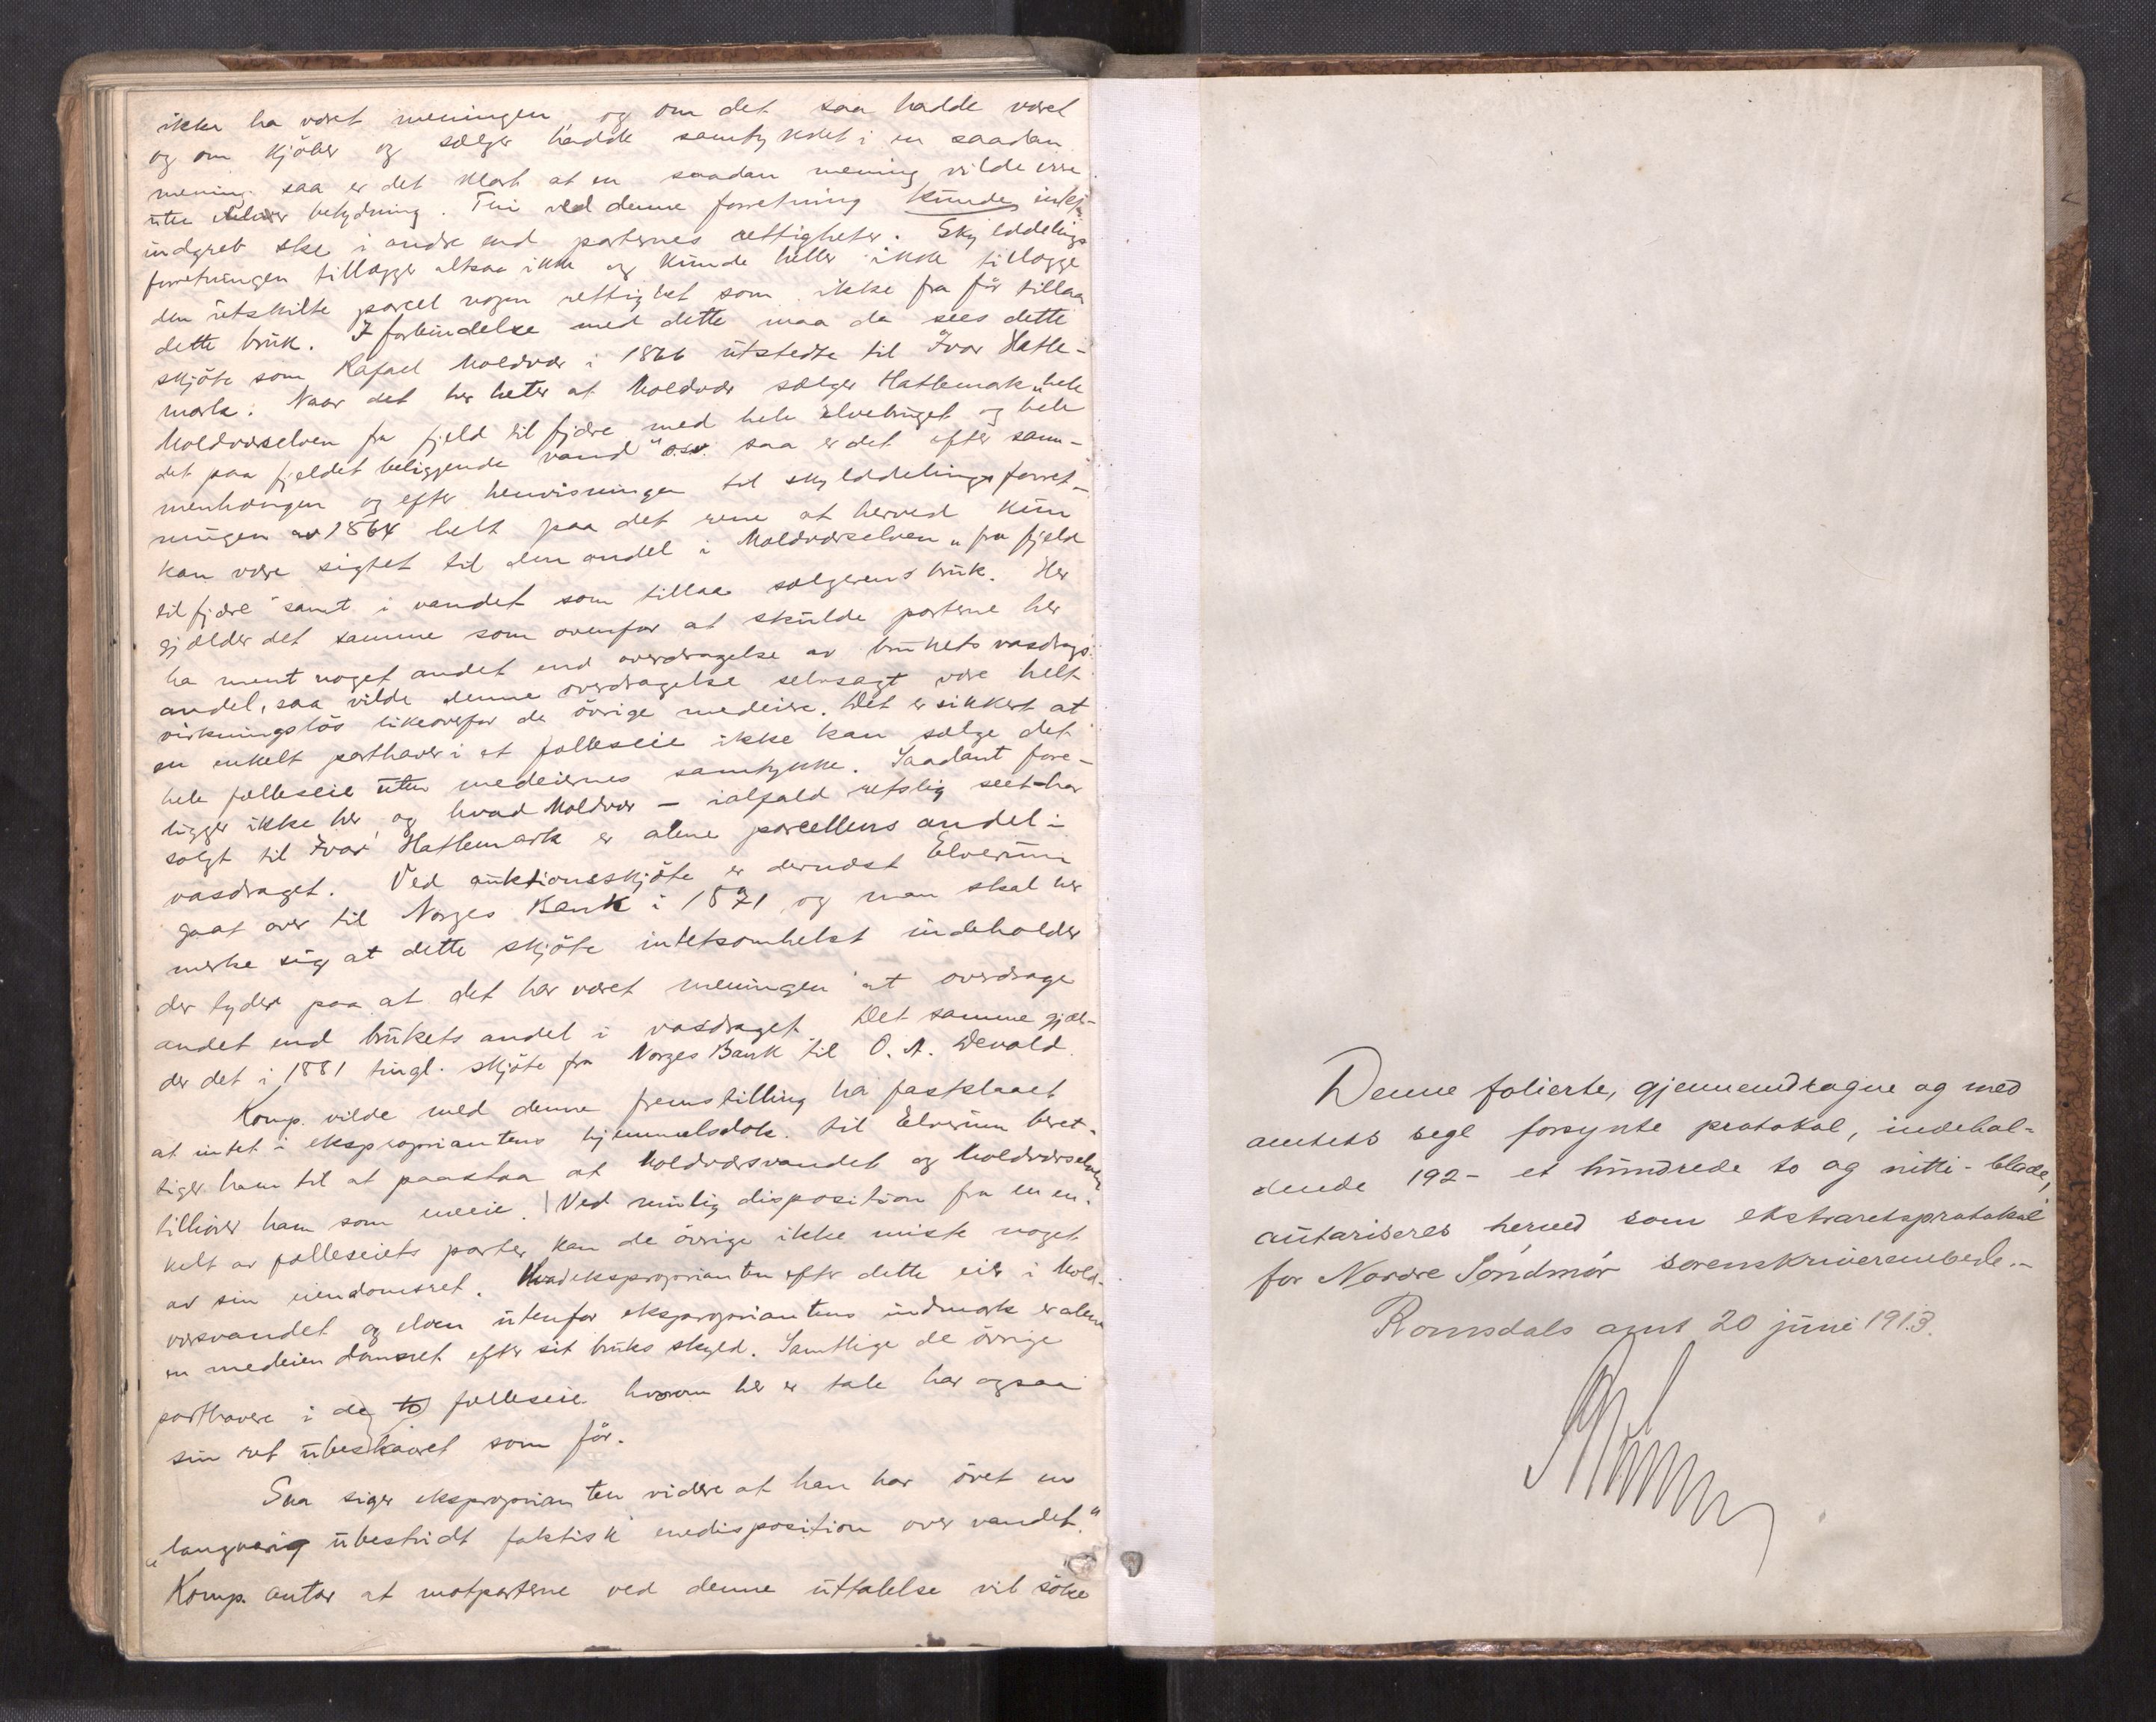 ikke ha været meningen, og om det saa hadde været
og om kjöber og sælger hadde samtykket i en saadan
mening saa er det klart at en saadan mening vilde være
uten enhver betydning. Thi ved denne forretning kunde intet
indgreb ske i andre end parternes rettigheter. Skylddelings
forretningen tillægger altsaa ikke og kunde heller ikke tillægge
den utskilte parcel nogen rettighet som ikke fra för tillaa
dette bruk. I forbindelse med dette maa da sees dette
skjöte som Rafael Moldvær i 1866 utstedte til Ivar Hatle-
mark. Naar det her heter at Moldvær sælger Hatlemark „hele
Moldværselven fra fjeld til fjære med hele elvebruget og hele
det paa fjeldet beliggende vand" o.s.v. saa er det efter sam-
menhængen og efter henvisningen til skylddelingsforret-
ningen av 1864 helt paa det rene at herved kun
kan være sigtet til den andel i Moldværselven „fra fjeld
til fjære" samt i vandet som tillaa sælgerens bruk. Her
gjælder det samme som ovenfor at skulde parterne her
ha ment noget andet end overdragelse av brukets vasdrags-
andel, saa vilde denne overdragelse selvsagt være helt
virkningslös likeoverfor de övrige medeiere. Det er sikkert at
en enkelt parthaver i et fælleseie ikke kan sælge det
hele fælleseie uten medeiernes samtykke. Saadant fore-
ligger ikke her og hvad Moldvær – ialfald retslig seet – har
solgt til Ivar Hatlemark er alene parcellens andel i
vasdraget. Ved auktionsskjöte er dernæst Elverum
gaat over til Norges Bank i 1871 og man skal her
merke sig at dette skjöte intetsomhelst indeholder
der tyder paa at det har været meningen at overdrage
andet end brukets andel i vasdraget. Det samme gjæl-
der det i 1881 tingl. skjöte fra Norges Bank til O. A. Devold.
Komp. vilde med denne fremstilling ha fastslaaet
at intet i ekspropriantens hjemmelsdok. til Elverum beret-
tiger ham til at paastaa at Moldværsvandet og Moldværselven
tilhører ham som eneeie. Ved ensidig disposition fra en en-
kelt av fælleseiets parter kan de övrige ikke miste noget
av sin eiendomsret. Hvad eksproprianten efter dette eier i Mold-
værsvandet og elven utenfor ekspropriantens indmark er alene
en medeiendomsret efter sit bruks skyld. Samtlige de övrige
parthavere i de to fælleseie hvorom her er tale har ogsaa
sin ret ubeskaaret som för.
Saa siger eksproprianten videre at han har övet en
„langvarig ubestridt faktisk enedisposition over vandet."
Komp. antar at motparterne ved denne uttalelse vil söke
Denne folierte, gjennemdragne og med
amtets segl forsynte protokol, indehol-
dende 192 - et hundrede to og nitti - blade,
autoriseres herved som ekstraretsprotokol
for Nordre Söndmör sorenskriverembede.-
Romsdals amt 20 juni 1913.